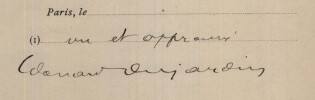 Paris, le
(1) vu et approuvé
Edouard Dujardin